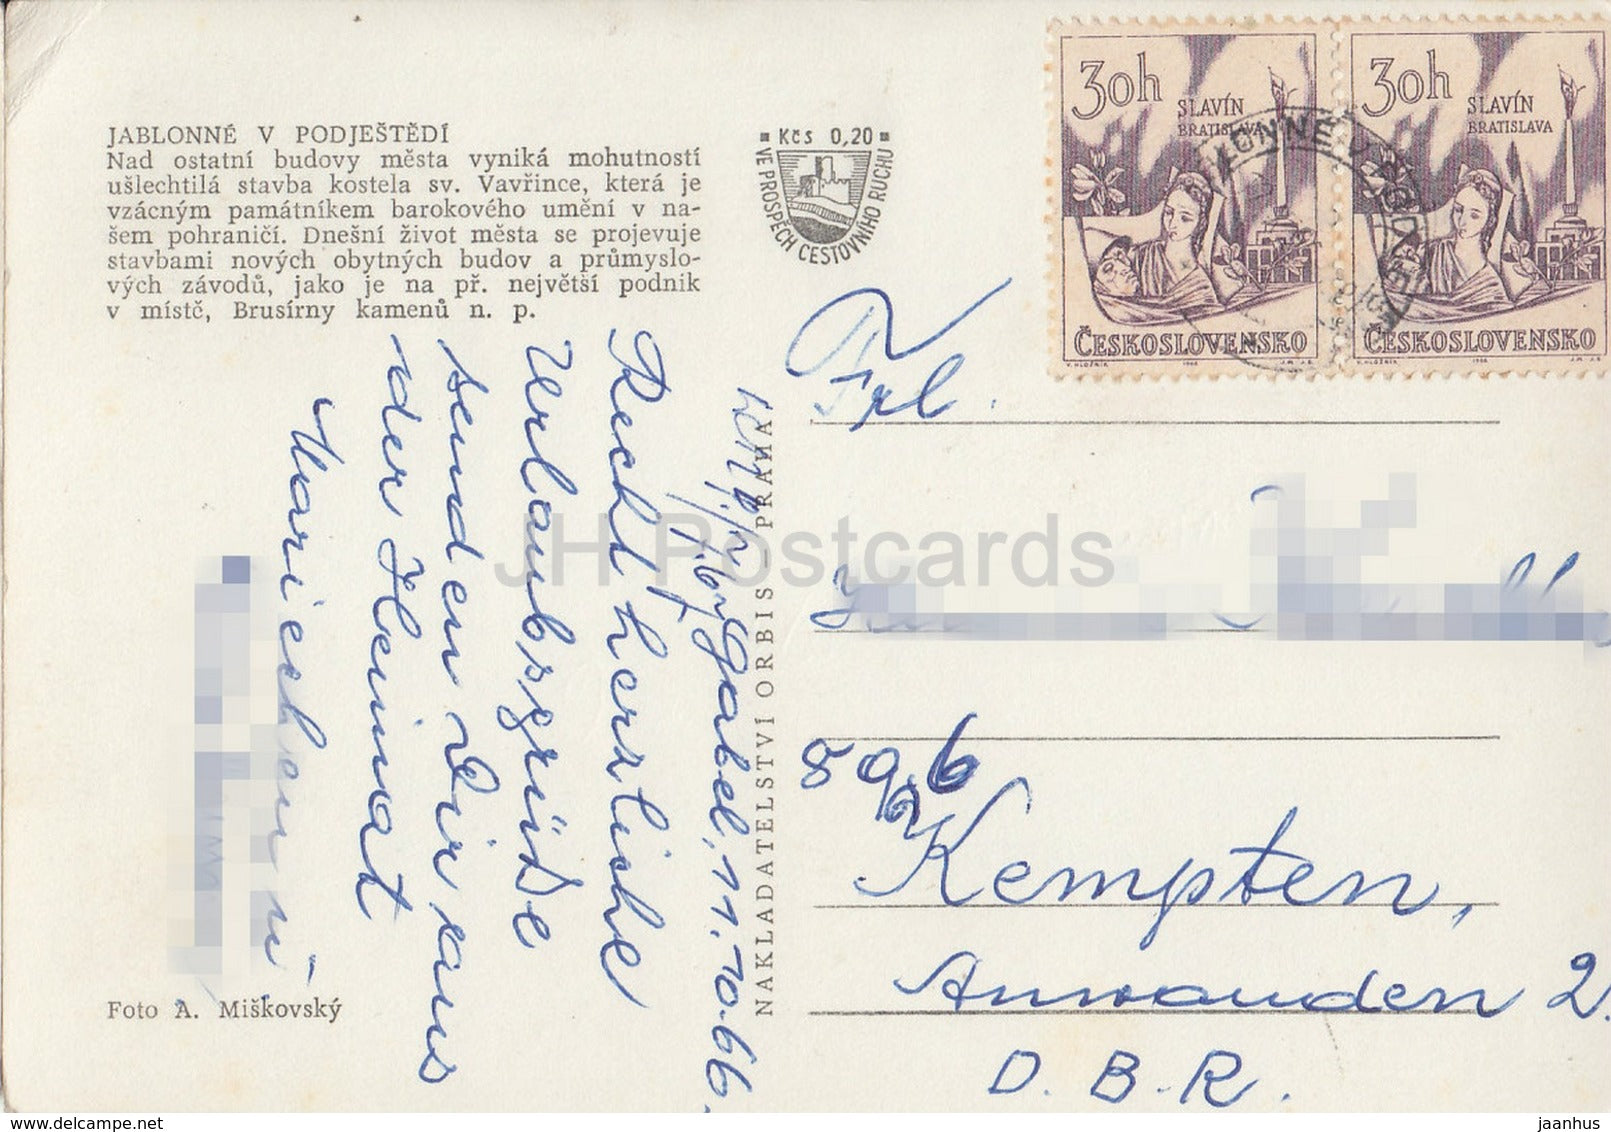 JABLONNÉ V PODJEŠTĚDÍ
Nad ostatní budovy města vyniká mohutností
ušlechtilá stavba kostela sv. Vavřince, která je
vzácným památníkem barokového umění v na-
šem pohraničí. Dnešní život města se projevuje
stavbami nových obytných budov a průmyslo-
vých závodů, jako je na př. největší podnik
v místě, Brusírny kamenů n. p.
Kčs 0,20
VE PROSPĚCH CESTOVNÍHO RUCHU
30h
SLAVÍN
BRATISLAVA
ČESKOSLOVENSKO
V. HLOŽNÍK 1966 J.M. J.S.
30h
SLAVÍN
BRATISLAVA
ČESKOSLOVENSKO
V. HLOŽNÍK 1966 J.M. J.S.
Gabel, 11.10.66.
Recht herzliche
Urlaubsgrüße
senden Dir aus
der Heimat
Mariechen u.
NAKLADATELSTVÍ ORBIS – PRAHA
Foto A. Miškovský
Frl.
896
Kempten,
Annwanden 2.
D.B.R.
JH Postcards
delcampe.net
jaanhus